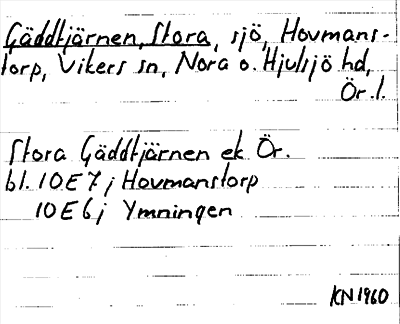 Gäddtjärnen, Stora, sjö, Hovmans-
torp, Vikers sn, Nora o. Hjulsjö hd,
Ör. l.
Stora Gäddtjärnen ek Ör.
bl. 10E7; Hovmanstorp
10E6; Ymningen
KN1960